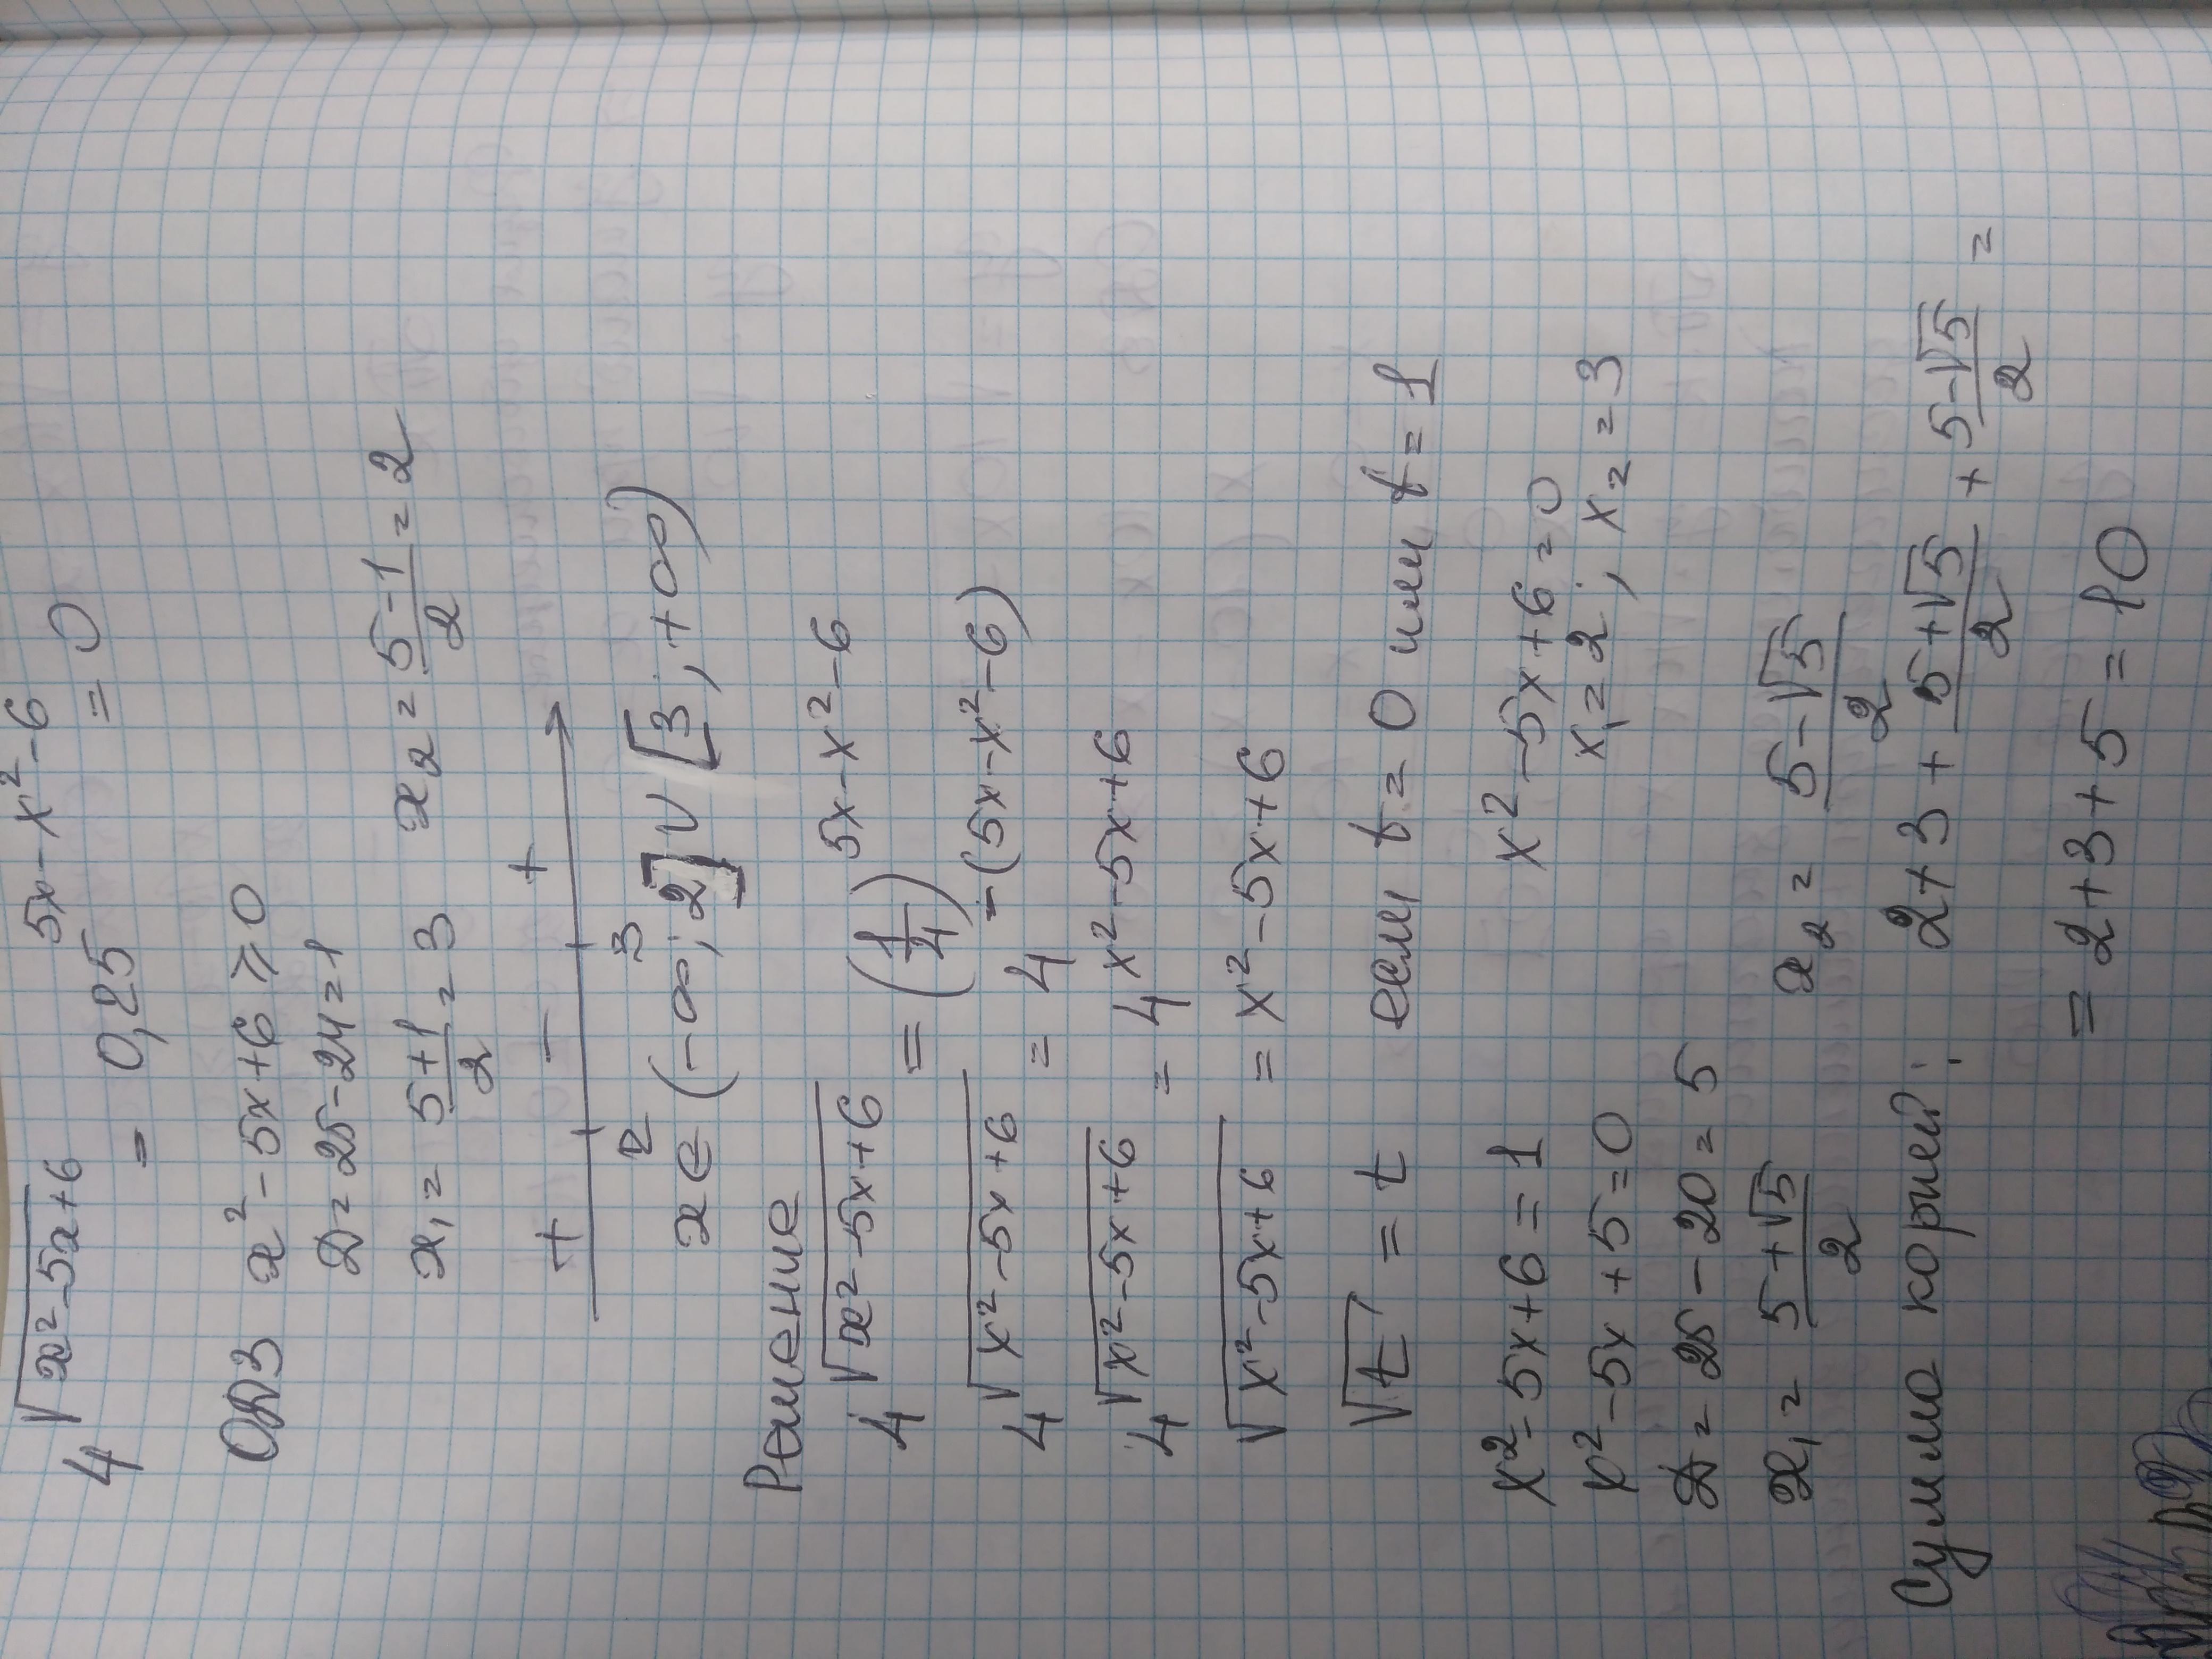 4^{√(x²-5x+6)} = 0,25^{5x-x²-6} = 0
ОДЗ x²-5x+6⩾0
D=25-24=1
x₁=(5+1)/2=3 x₂=(5-1)/2=2
+ - +
2 3
x∈(-∞;2]∪[3;+∞)
Решение
4^{√(x²-5x+6)} = (1/4)^{5x-x²-6}
4^{√(x²-5x+6)} = 4^{-(5x-x²-6)}
4^{√(x²-5x+6)} = 4^{x²-5x+6}
√(x²-5x+6) = x²-5x+6
√t = t если t=0 или t=1
x²-5x+6=1 x²-5x+6=0
x²-5x+5=0 x₁=2; x₂=3
D=25-20=5
x₁=(5+√5)/2 x₂=(5-√5)/2
Сумма корней: 2+3+(5+√5)/2+(5-√5)/2=
=2+3+5=10